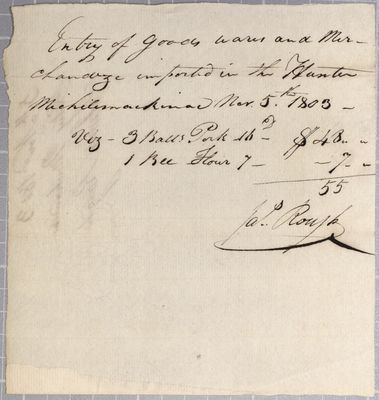 Entry of Goods wares and Mer-
chandize imported in the Hunter
Michilimackinac Nov. 5th. 1803 -
Viz - 3 Balls Pork 16 $ 48 " "
1 Bll Flour 7 - - 7 - "
55
Jas. Rough